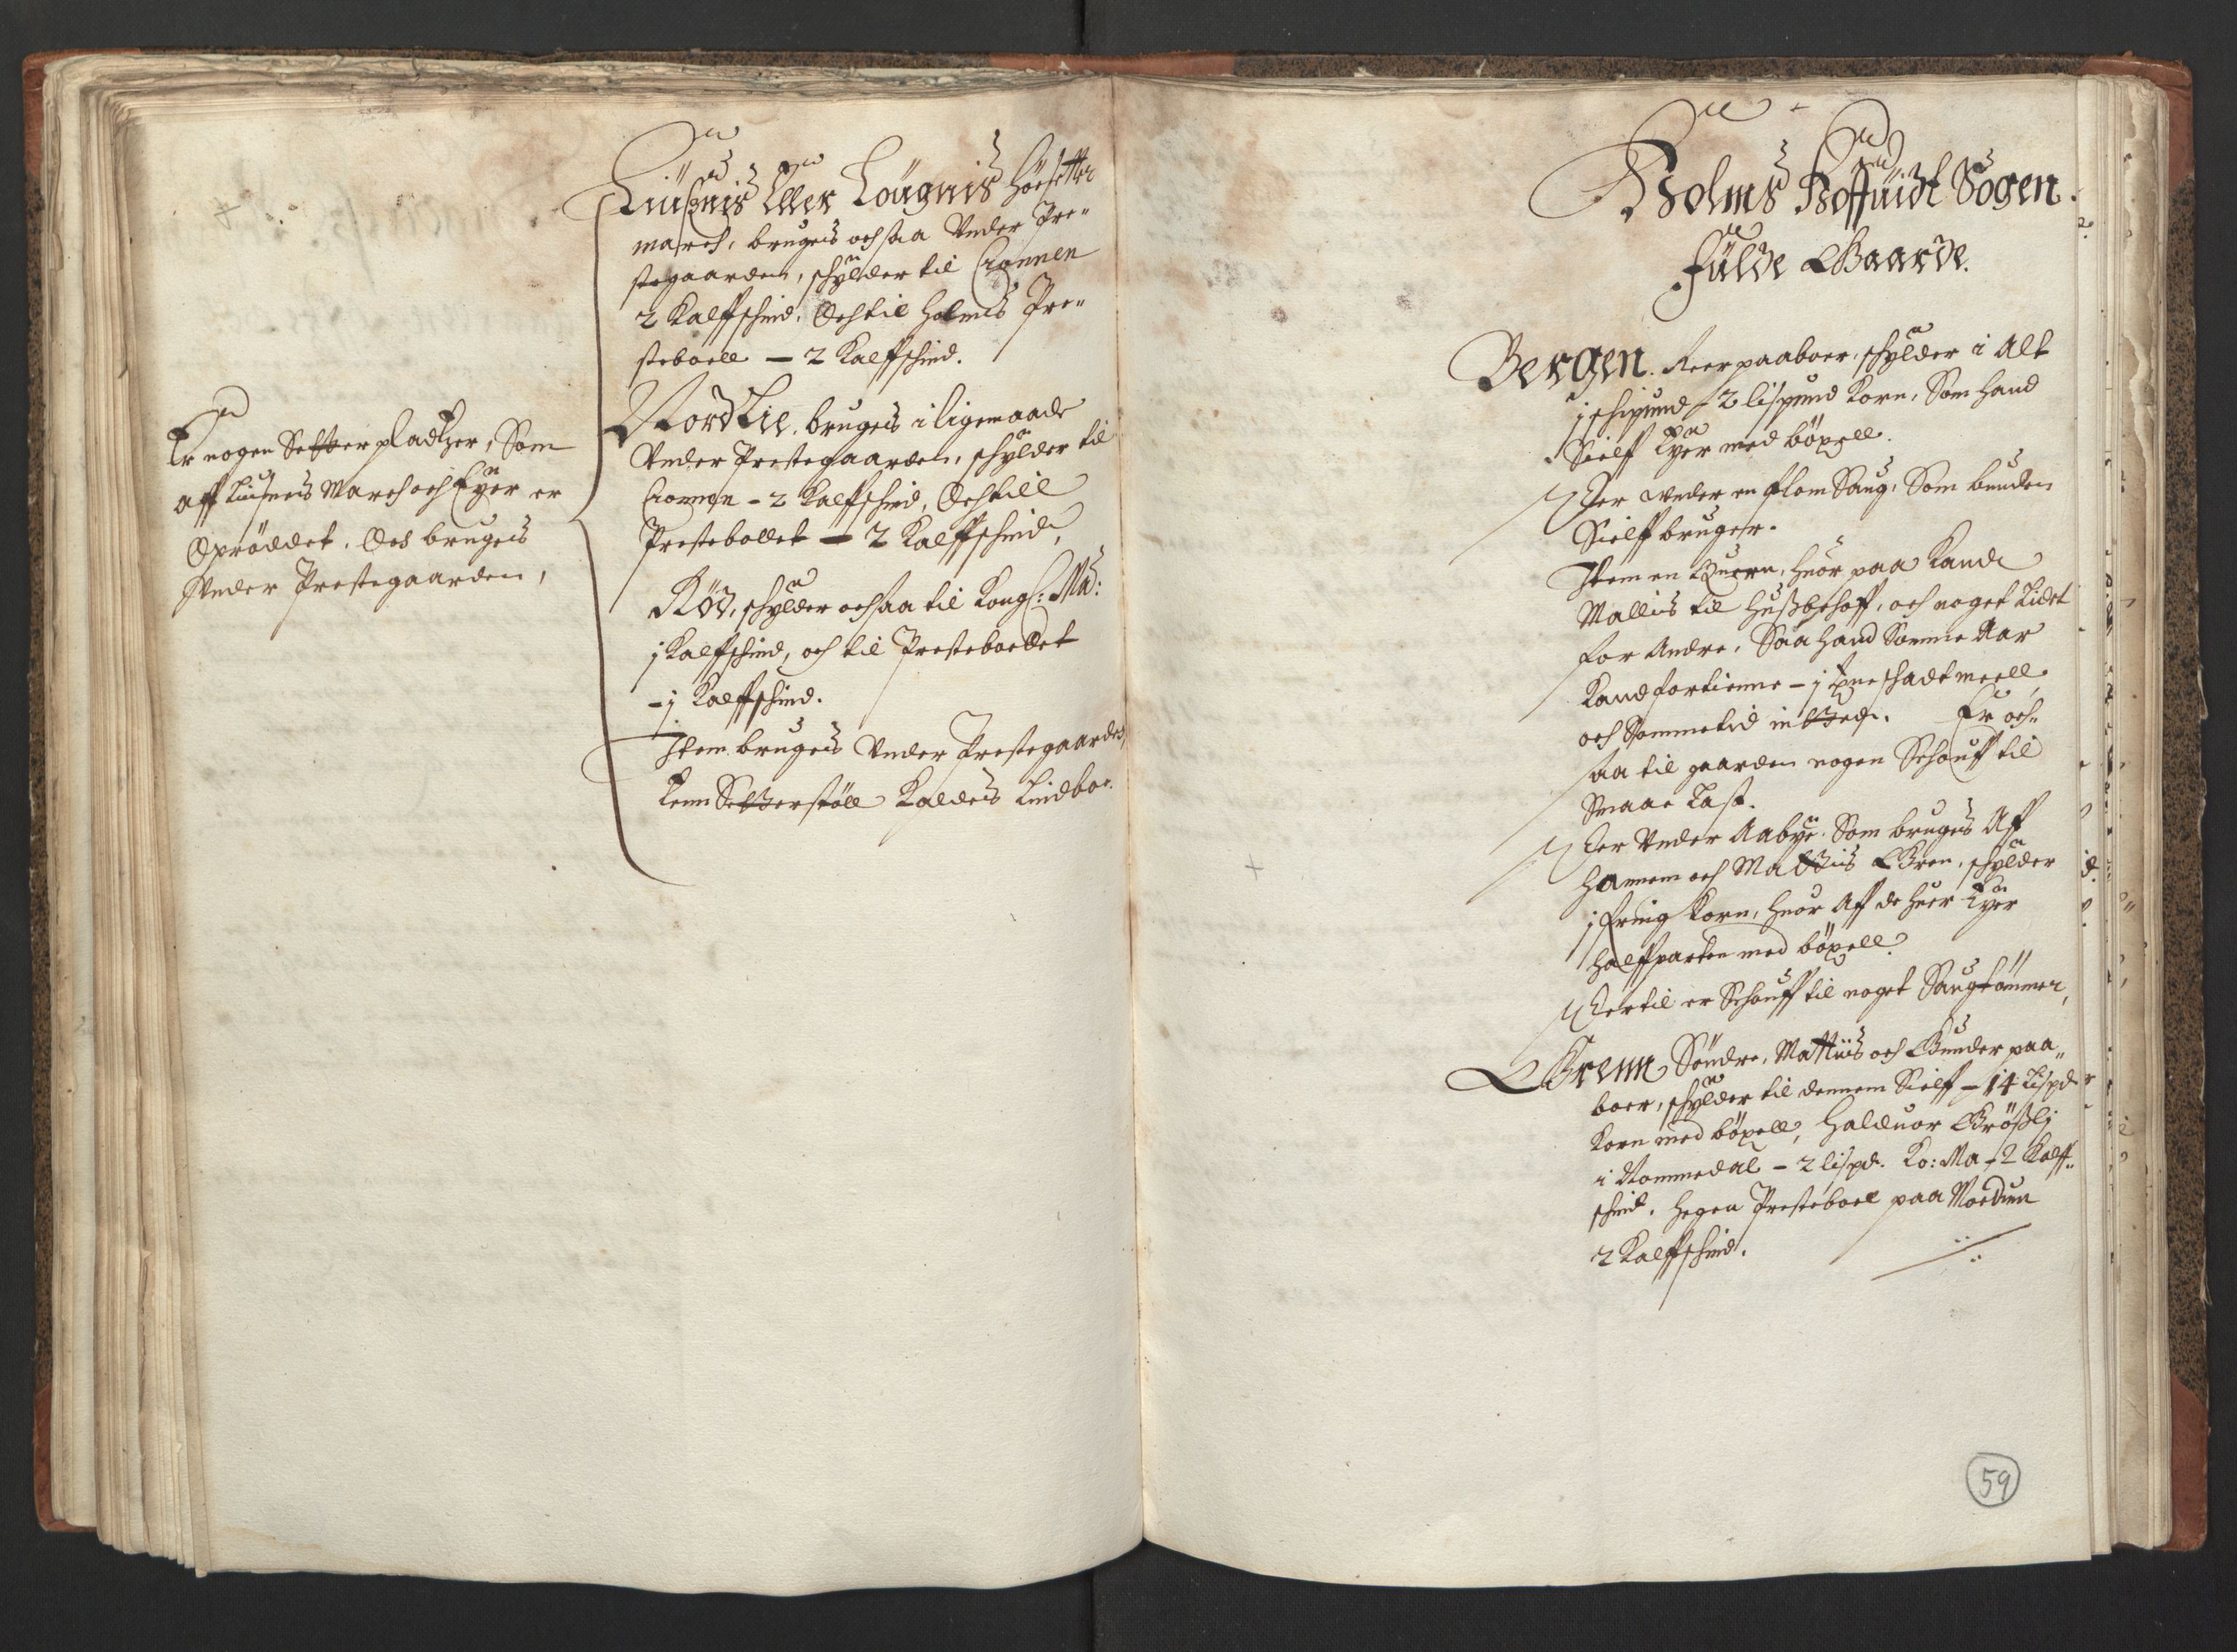 Er nogen Setter pladtzer, Som
aff Liusnes March och Eyer er
Oprøddet. Och brugis
Under Prestegaarden,
Liüsnis Eller Lougnis Høesetter
march, brugis ochsaa Under Pre-
stegaarden, schylder til Cronnen
2 Kalffschind. Och til Holmes Pre-
steboell - 2 Kalffschind.
Nordlie. brugis i ligemaade
Under Prestegaarden, schylder til
Cronen - 2 Kalffschind, Och till
Prestebollet - 2 Kalffschind,
Rød, schylder ochsaa til Kongl: Ma:
j Kalffschind, och til Presteboellet
- j Kalffschind.
Item brugis Under Prestegaarden,
Setterstøll Kaldes Lindboe.
Holms Hoffuidt Sogen.
Fulde Gaarde.
Bergen. Peer paaboer, schylder i Alt
j schipund - 2 lispund Korn, Som hand
Sielff Eyer med bøxell.
Der under en flom Saug, Som bunden
Sielff bruger.
Item en Quern, huor paa Kand
Mallis til Hussbehoff, och noget Lidet
for Andre, Saa hand Somme Aar
Kand fortienne - j tønne schadt meell,
och Sommetid intted. Er och-
saa til gaarden nogen Schouff til
Smaae Last.
Der Under Aabye. Som brugis Aff
hannem och Mattis Gren, schylder
j fring Korn, huor Aff de huer Eyer
halffparten med bøxell.
Dertil er Schouff til noget Saugtømmer,
Grenn Søndre, Mattiis och Gunder paa-
boer, schylder til dennem Sielff - 14 Lispd
Korn med bøxell, Halduor Grøssli
i Nommedal - 2 lispd. Ko: Ma - 2 Kalff-
schind. Hegen Presteboel paa Modum
2 Kalffschind.
59